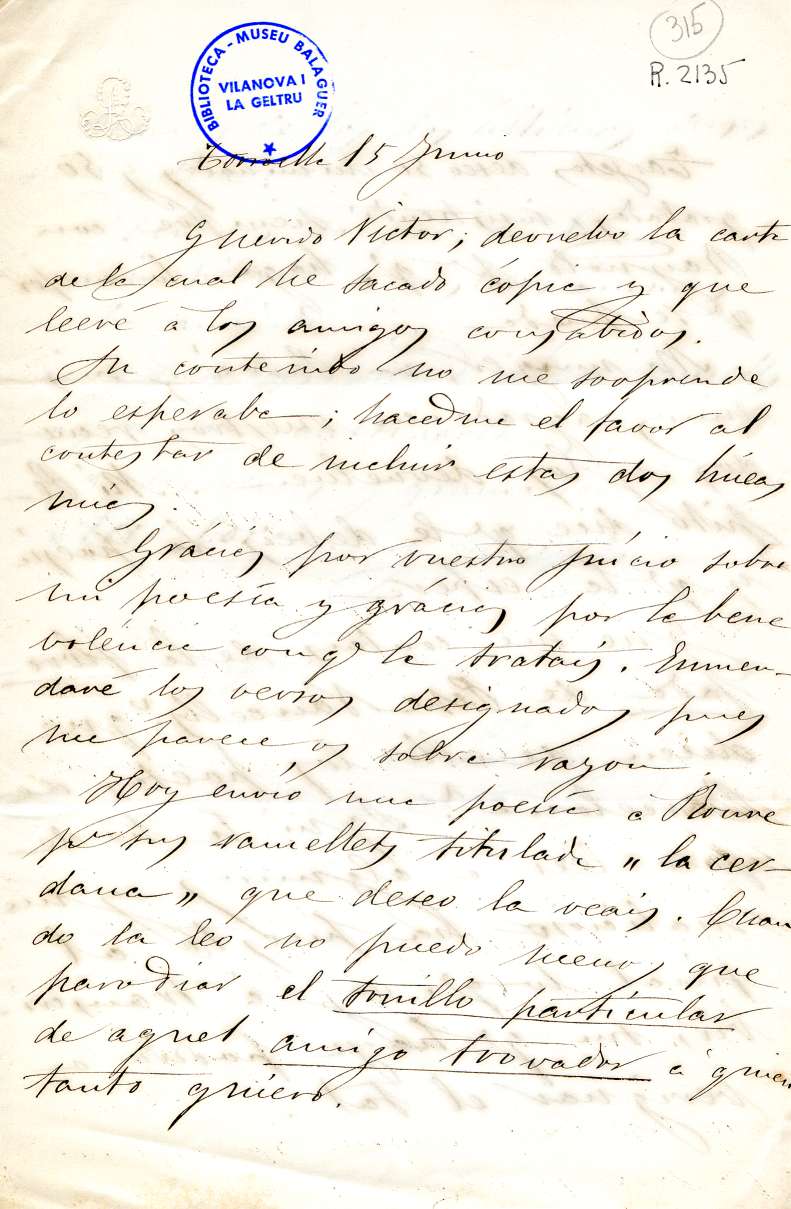 315
R. 2135
BIBLIOTECA - MUSEU BALAGUER
VILANOVA I
LA GELTRU
Torroella 15 Junio
Querido Victor; devuelvo la carta
de la cual he sacado cópia y que
leeré á los amigos consabidos.
Su contenido no me sorprende
lo esperaba; hacedme el favor al
contestar de incluir estas dos líneas
mias.
Grácias por vuestro juício sobre
mi poesía y grácias por la bene
voléncia con q.e la tratais. Enmen-
daré los versos designados pues
me parece os sobra razon.
Hoy envío una poesía á Roure
p.a sus ramellets titulada „la cer-
dana„ que deseo la veais. Cuan
do la leo no puedo menos que
parodiar el tonillo particular
de aquel amigo trovador á quien
tanto quiero.